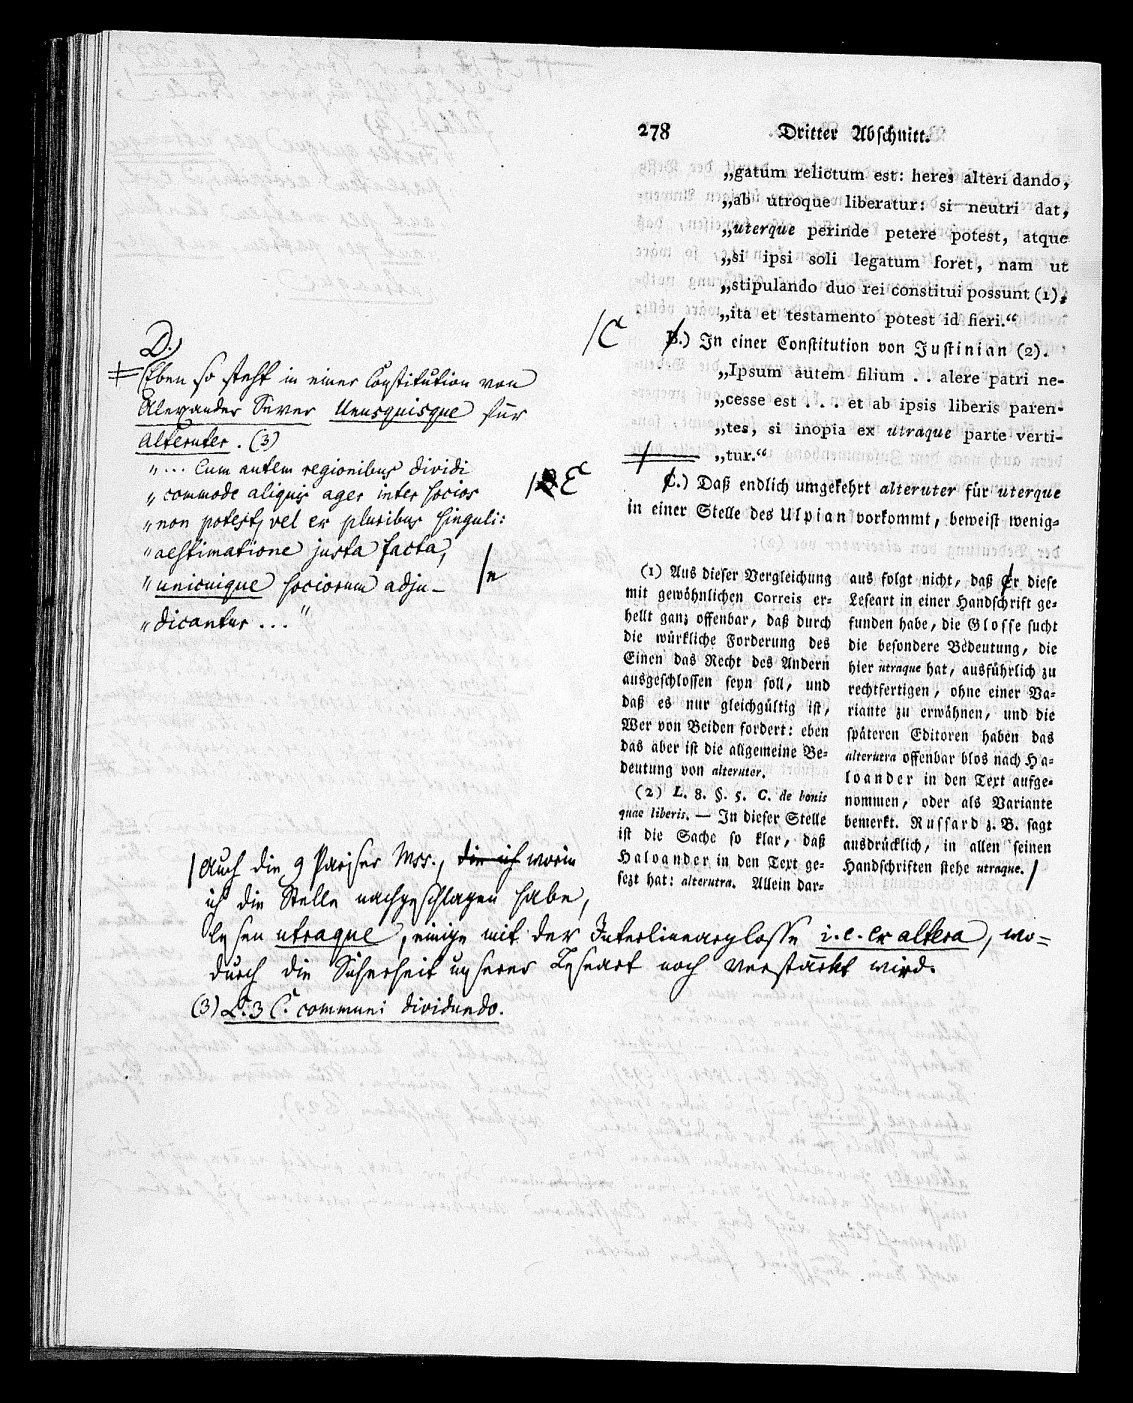 278 Dritter Abschnitt.
„gatum relictum est: heres alteri dando,
„ab utroque liberatur: si neutri dat,
„uterque perinde petere potest, atque
„si ipsi soli legatum foret, nam ut
„stipulando duo rei constitui possunt (1),
„ita et testamento potest id fieri.“
/C
B.) In einer Constitution von Justinian (2).
„Ipsum autem filium . . alere patri ne-
„cesse est . . . et ab ipsis liberis paren-
„tes, si inopia ex utraque parte verti-
„tur.“
/E
C.) Daß endlich umgekehrt alteruter für uterque
in einer Stelle des Ulpian vorkommt, beweist wenig-
D.)
Eben so steht in einer Constitution von
Alexander Sever Unusquisque für
Alteruter. (3)
„ ... Cum autem regionibus dividi
„ commode aliquis ager inter socios
„ non potest, vel ex pluribus singuli:
„ aestimatione justa facta,
„ unicuique sociorum adju-
„ dicantur ... “
/n
(1) Aus dieser Vergleichung
mit gewöhnlichen Correis er-
hellt ganz offenbar, daß durch
die würkliche Forderung des
Einen das Recht des Andern
ausgeschlossen seyn soll, und
daß es nur gleichgültig ist,
Wer von Beiden fordert: eben
das aber ist die allgemeine Be-
deutung von alteruter.
(2) L. 8. §. 5. C. de bonis
quae liberis. — In dieser Stelle
ist die Sache so klar, daß
Haloander in den Text ge-
sezt hat: alterutra. Allein dar-
aus folgt nicht, daß Er diese
Leseart in einer Handschrift ge-
funden habe, die Glosse sucht
die besondere Bedeutung, die
hier utraque hat, ausführlich zu
rechtfertigen, ohne einer Va-
riante zu erwähnen, und die
späteren Editoren haben das
alterutra offenbar blos nach Ha-
loander in den Text aufge-
nommen, oder als Variante
bemerkt. Russard z. B. sagt
ausdrücklich, in allen seinen
Handschriften stehe utraque. /
/ Auch die 9 Pariser Mss., die ich worin
ich die Stelle nachgeschlagen habe,
lesen utraque, einige mit der Interlinearglosse i. e. ex altera, wo-
durch die Sicherheit unserer Leseart noch verstärkt wird.
(3) L. 3 C. communi dividundo.